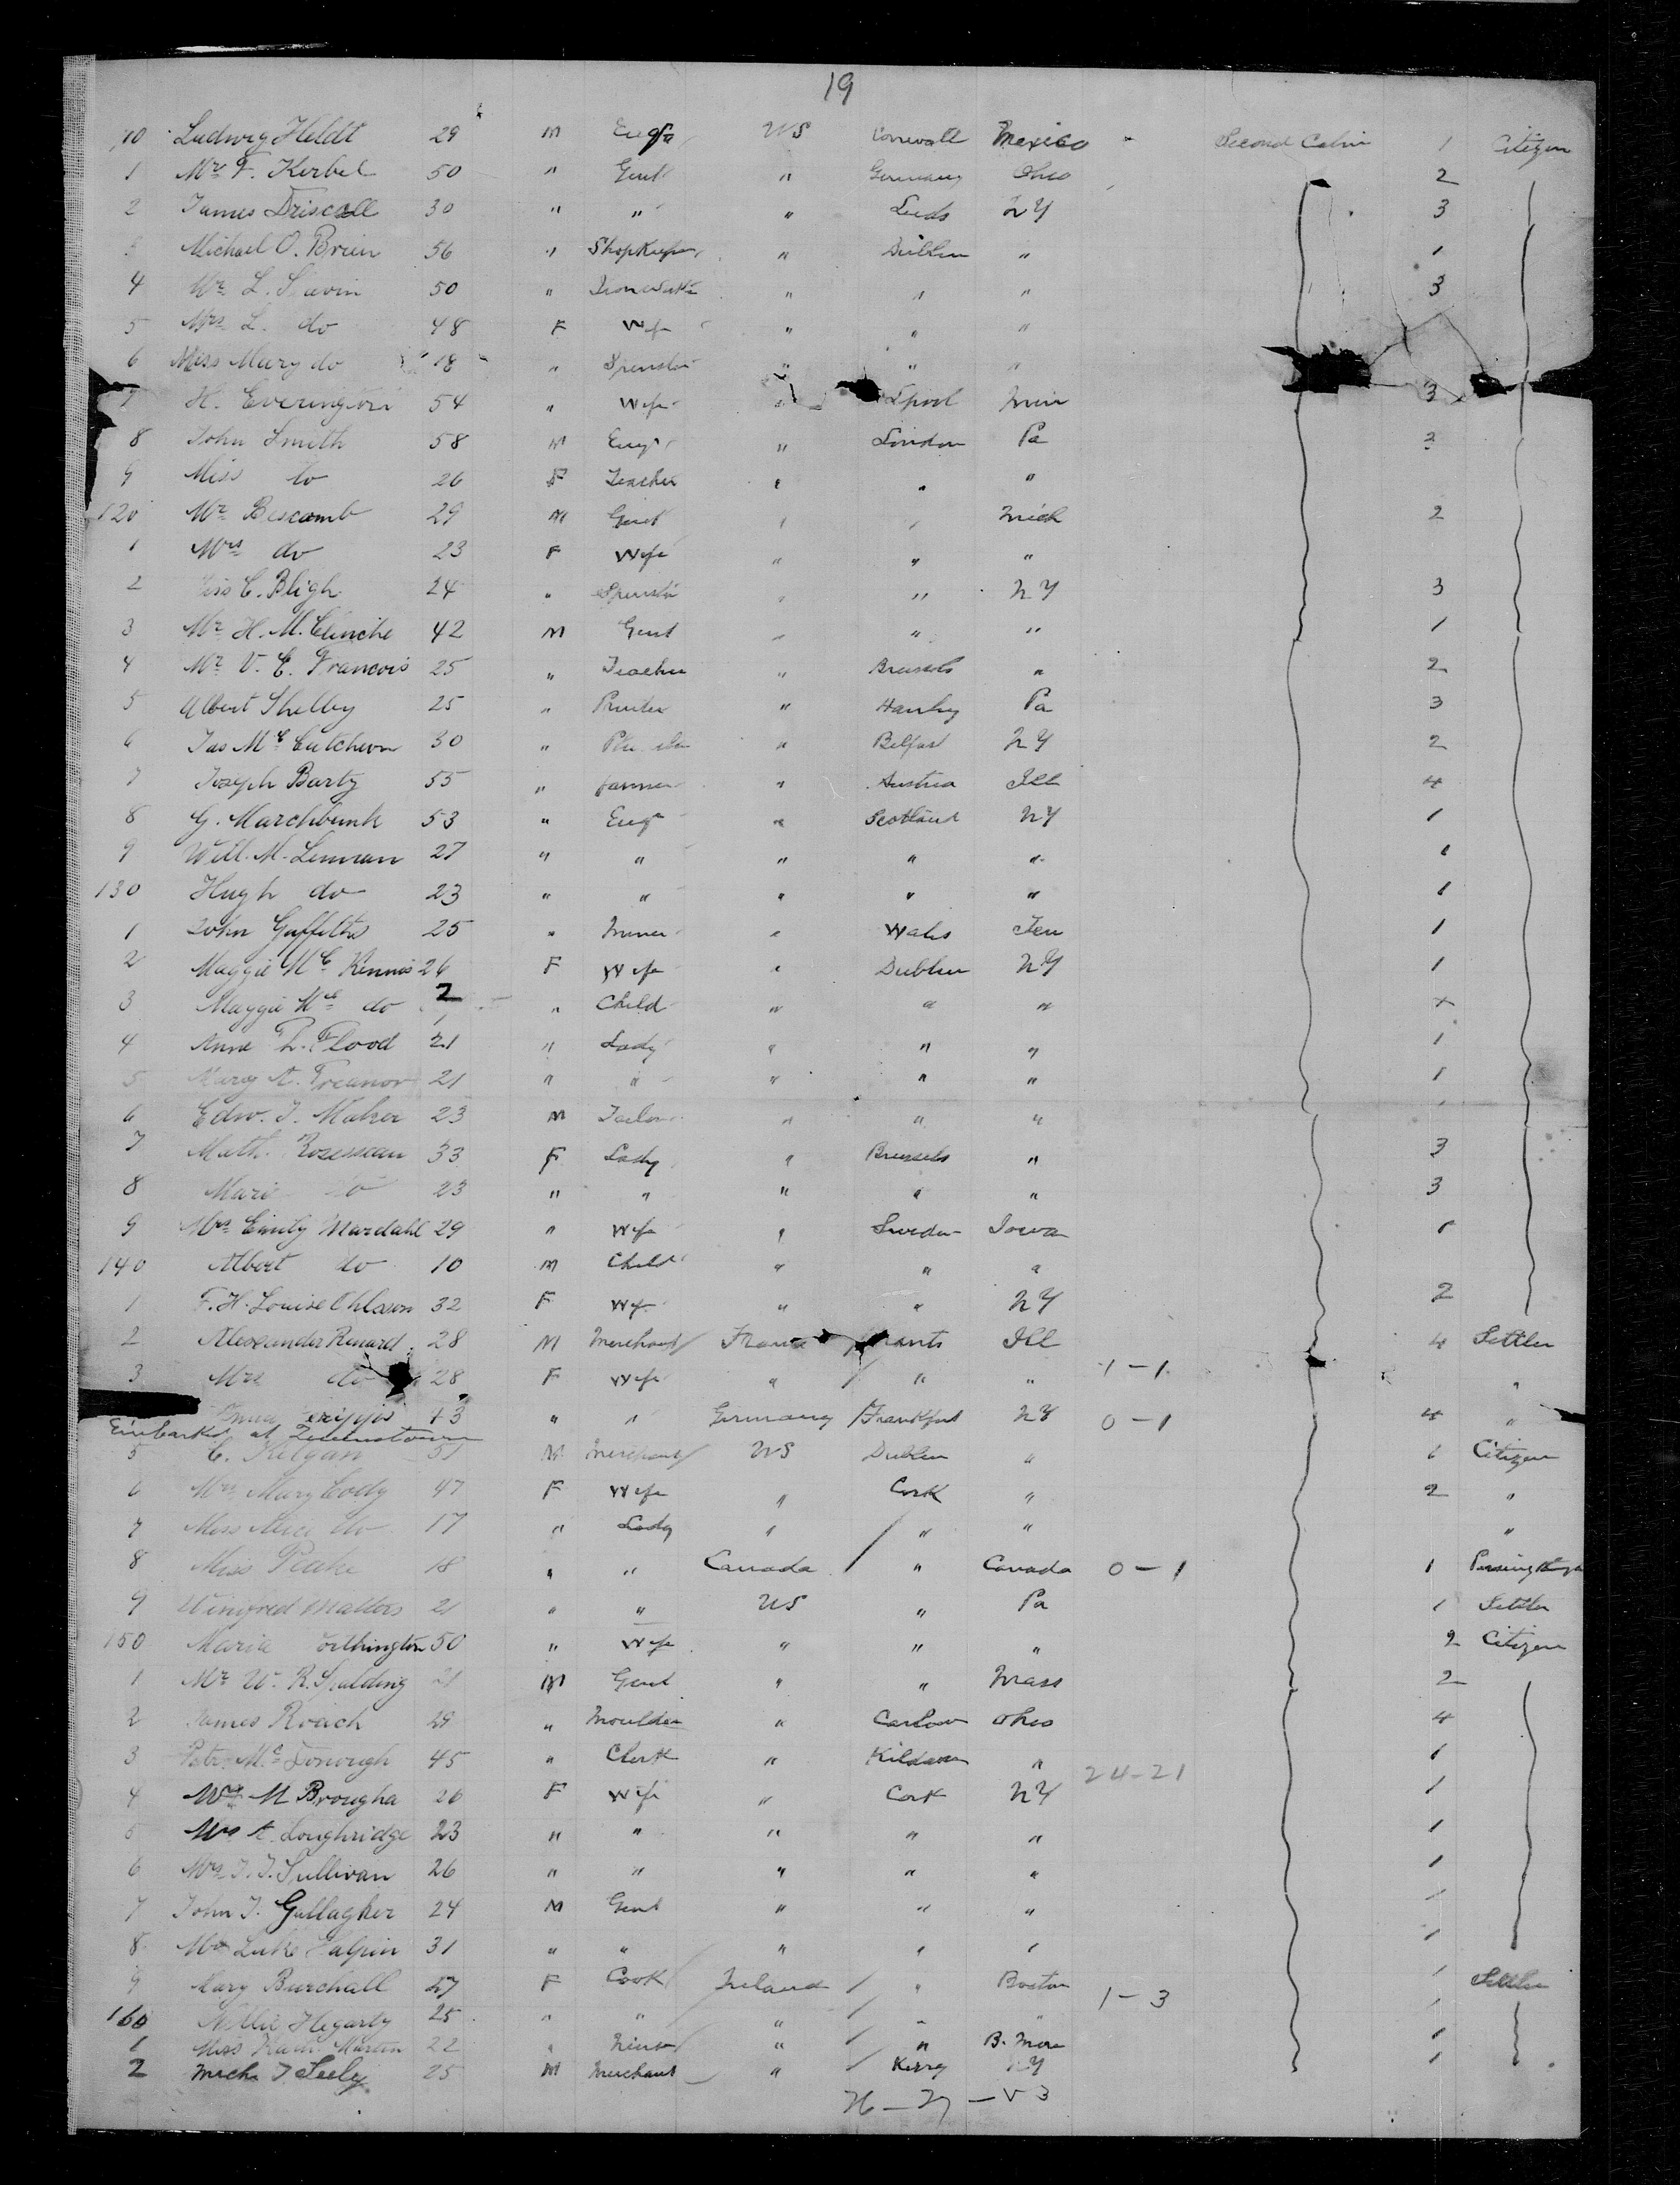 19
10 Ludwig Heldt 29 M Eng US Cornwall Mexico Second Cabin 1 Citizen
1 Mr F. Kerbel 50 " Gent " Germany Ohio 2
2 James Driscoll 30 " " " Leeds NY 3
3 Michael O. Brien 56 " Shopkeeper " Dublin " 1
4 Mr L. Slevin 50 " " " " 3
5 Mrs L. do 48 F Wife " " "
6 Miss Mary do 18 " Spinster " " "
7 H. Everington 54 " Wife " Lpool Minn 3
8 John Smith 58 M Engr " London Pa 2
9 Miss do 26 F Teacher " " "
120 Mr Bescomb 29 M Gent " " Mich 2
1 Mrs do 23 F Wife " " "
2 C. Bligh 24 " Spinster " " NY 3
3 Mr H. M. Clinche 42 M Gent " " " 1
4 Mr V. E. Francois 25 " Teacher " Brussels " 2
5 Albert Shelley 25 " Printer " Hanley Pa 3
6 Jas Mc Cutcheon 30 " " Belfast NY 2
7 Joseph Barty 55 " farmer " Austria Ill 4
8 G. Marchbunk 53 " Engr " Scotland NY 1
9 Will. M. Lennan 27 " " " " " 1
130 Hugh do 23 " " " " " 1
1 John Griffiths 25 " Miner " Wales Ten 1
2 Maggie Mc Kennis 26 F Wife " Dublin NY 1
3 Maggie Mc do 2 " Child " " " +
4 Anne L. Flood 21 " Lady " " " 1
5 Mary A. Treanor 21 " " " " " 1
6 Edw. J. Maher 23 M Tailor " " "
7 Math. Rosseseau 33 F Lady " Brussels " 3
8 Marie do 23 " " " " " 3
9 Mrs Emily Mardahl 29 " Wife " Sweden Iowa 1
140 Albert do 10 M Child " " "
1 F. H. Louise Ohlson 32 F Wife " " NY 2
2 Alexander Renard 28 M Merchant France Nants Ill 4 Settler
3 Mrs do 28 F Wife " " " 1-1 "
43 " " Germany Frankfurt NY 0-1 4 "
Embarked at Queenstown
5 C. Kelgan 51 M Merchant US Dublin " 1 Citizen
6 Mrs Mary Cody 47 F Wife " Cork " 2 "
7 Miss Alice do 17 " Lady " " " "
8 Miss 18 " " Canada " Canada 0-1 1 Passing thro
9 Winifred Malters 21 " " US " Pa 1 Settler
150 Maria orthington 50 " Wife " " " 2 Citizen
1 Mr W. R. Spalding 21 M Gent " " Mass 2
2 James Roach 29 " Moulder " Carlow Ohio 4
3 Patr. Mc Donough 45 " Clerk " Kildare " 24-21 1
4 Mrs M Brougha 26 F Wife " Cork NY 1
5 Mrs A. Loughridge 23 " " " " " 1
6 Mrs J. J. Sullivan 26 " " " " " 1
7 John J. Gallagher 24 M Gent " " " 1
8 Mr Luke Halpin 31 " " " " " 1
9 Mary Burchall 27 F Cook Ireland " Boston 1-3 1 Settler
160 Nellie Hegarty 25 " " " " " 1
1 Miss Martin 22 " Nurse " " B. More 1
2 Mich J Seely 25 M Merchant " Kerry NY 1